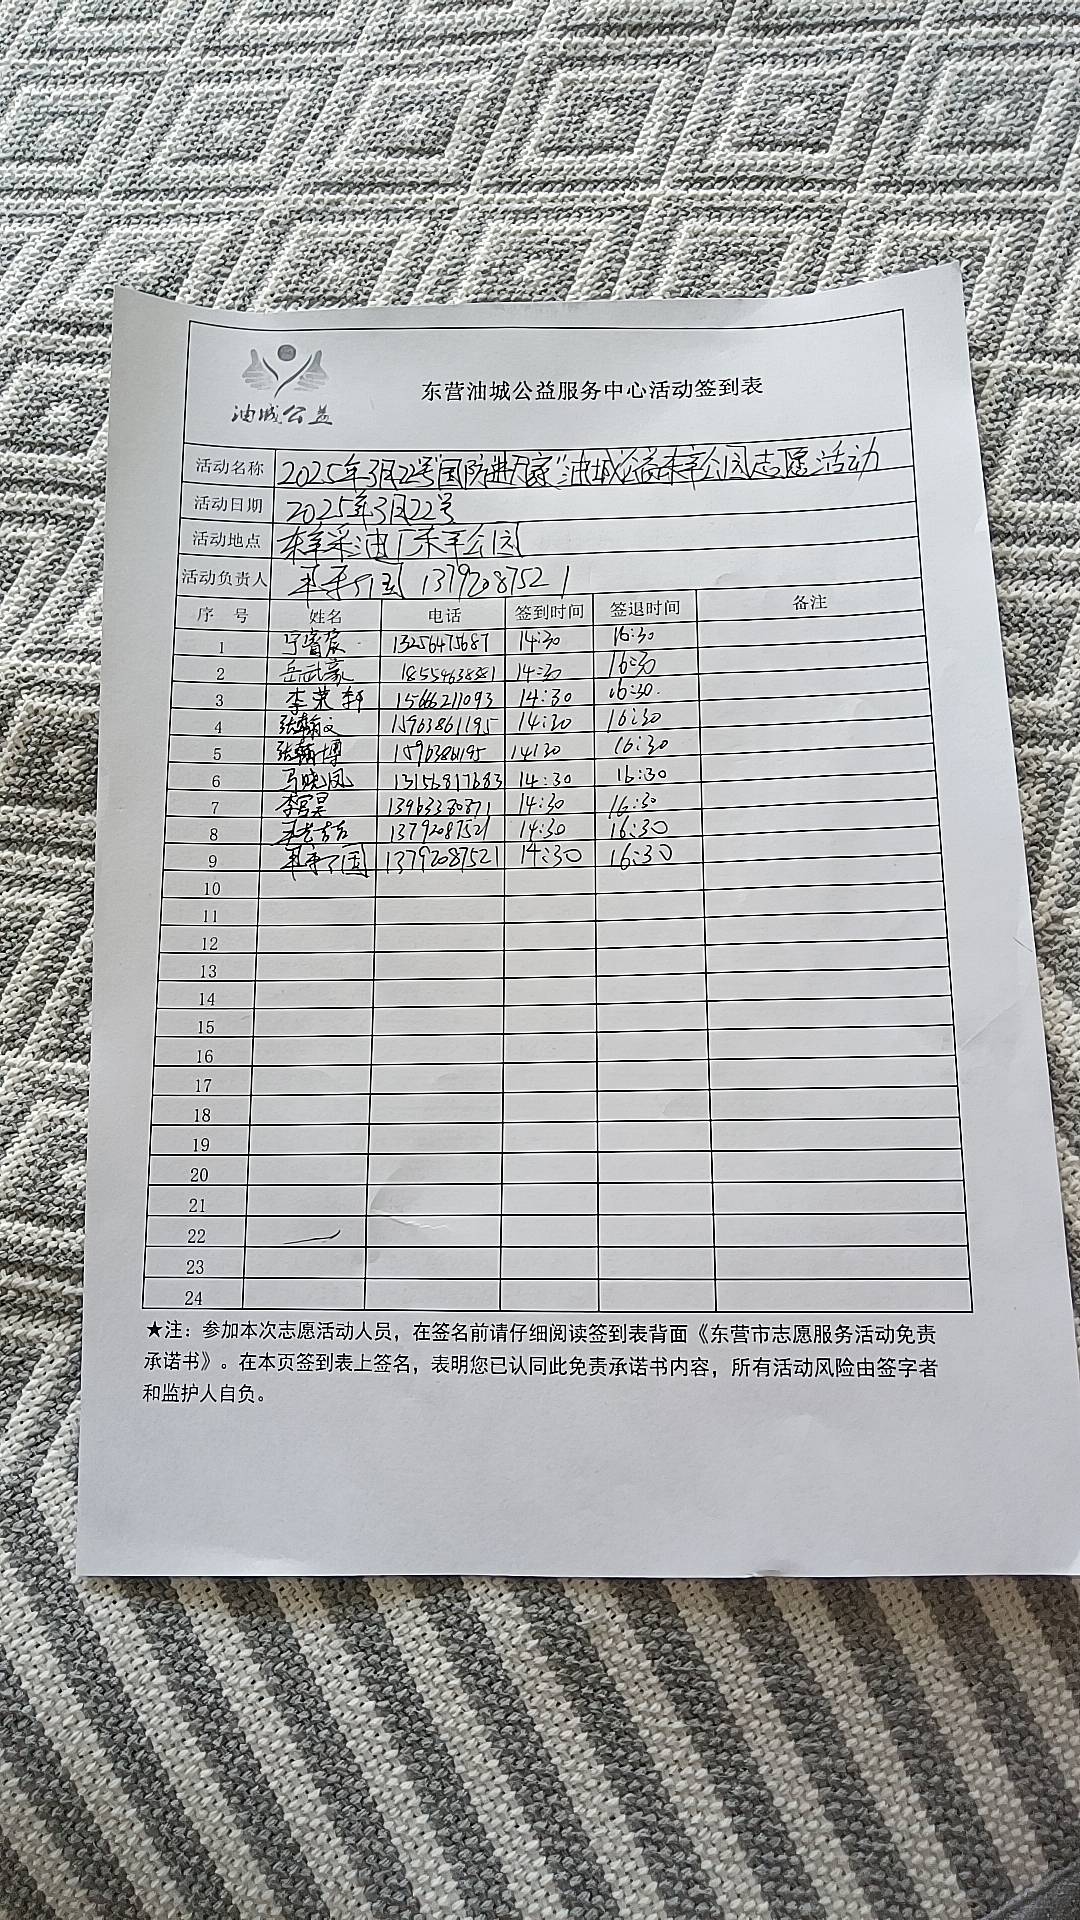 油城公益
东营油城公益服务中心活动签到表
活动名称 2025年3月22号"国防进万家"油城公益东辛公园志愿活动
活动日期 2025年3月22号
活动地点 东辛采油厂东辛公园
活动负责人 13792087521
序 号 姓名 电话 签到时间 签退时间 备注
1 宁睿宸 13256475687 14:30 16:30
2 岳武豪 18554638881 14:30 16:30
3 李荣轩 15666211093 14:30 16:30
4 张翰文 15963861195 14:30 16:30
5 张翰博 1596386195 14:30 16:30
6 马晓凤 13156817683 14:30 16:30
7 李宫昊 13963380871 14:30 16:30
8 13792087521 14:30 16:30
9 13792087521 14:30 16:30
10
11
12
13
14
15
16
17
18
19
20
21
22
23
24
★注：参加本次志愿活动人员，在签名前请仔细阅读签到表背面《东营市志愿服务活动免责
承诺书》。在本页签到表上签名，表明您已认同此免责承诺书内容，所有活动风险由签字者
和监护人自负。